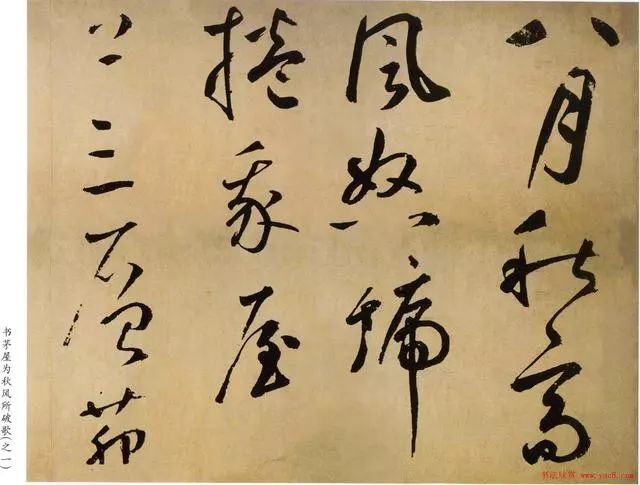 八月秋高
風怒號
捲我屋
上三層茅
书茅屋为秋风所破歌(之一)
书法欣赏 www.yac8.com